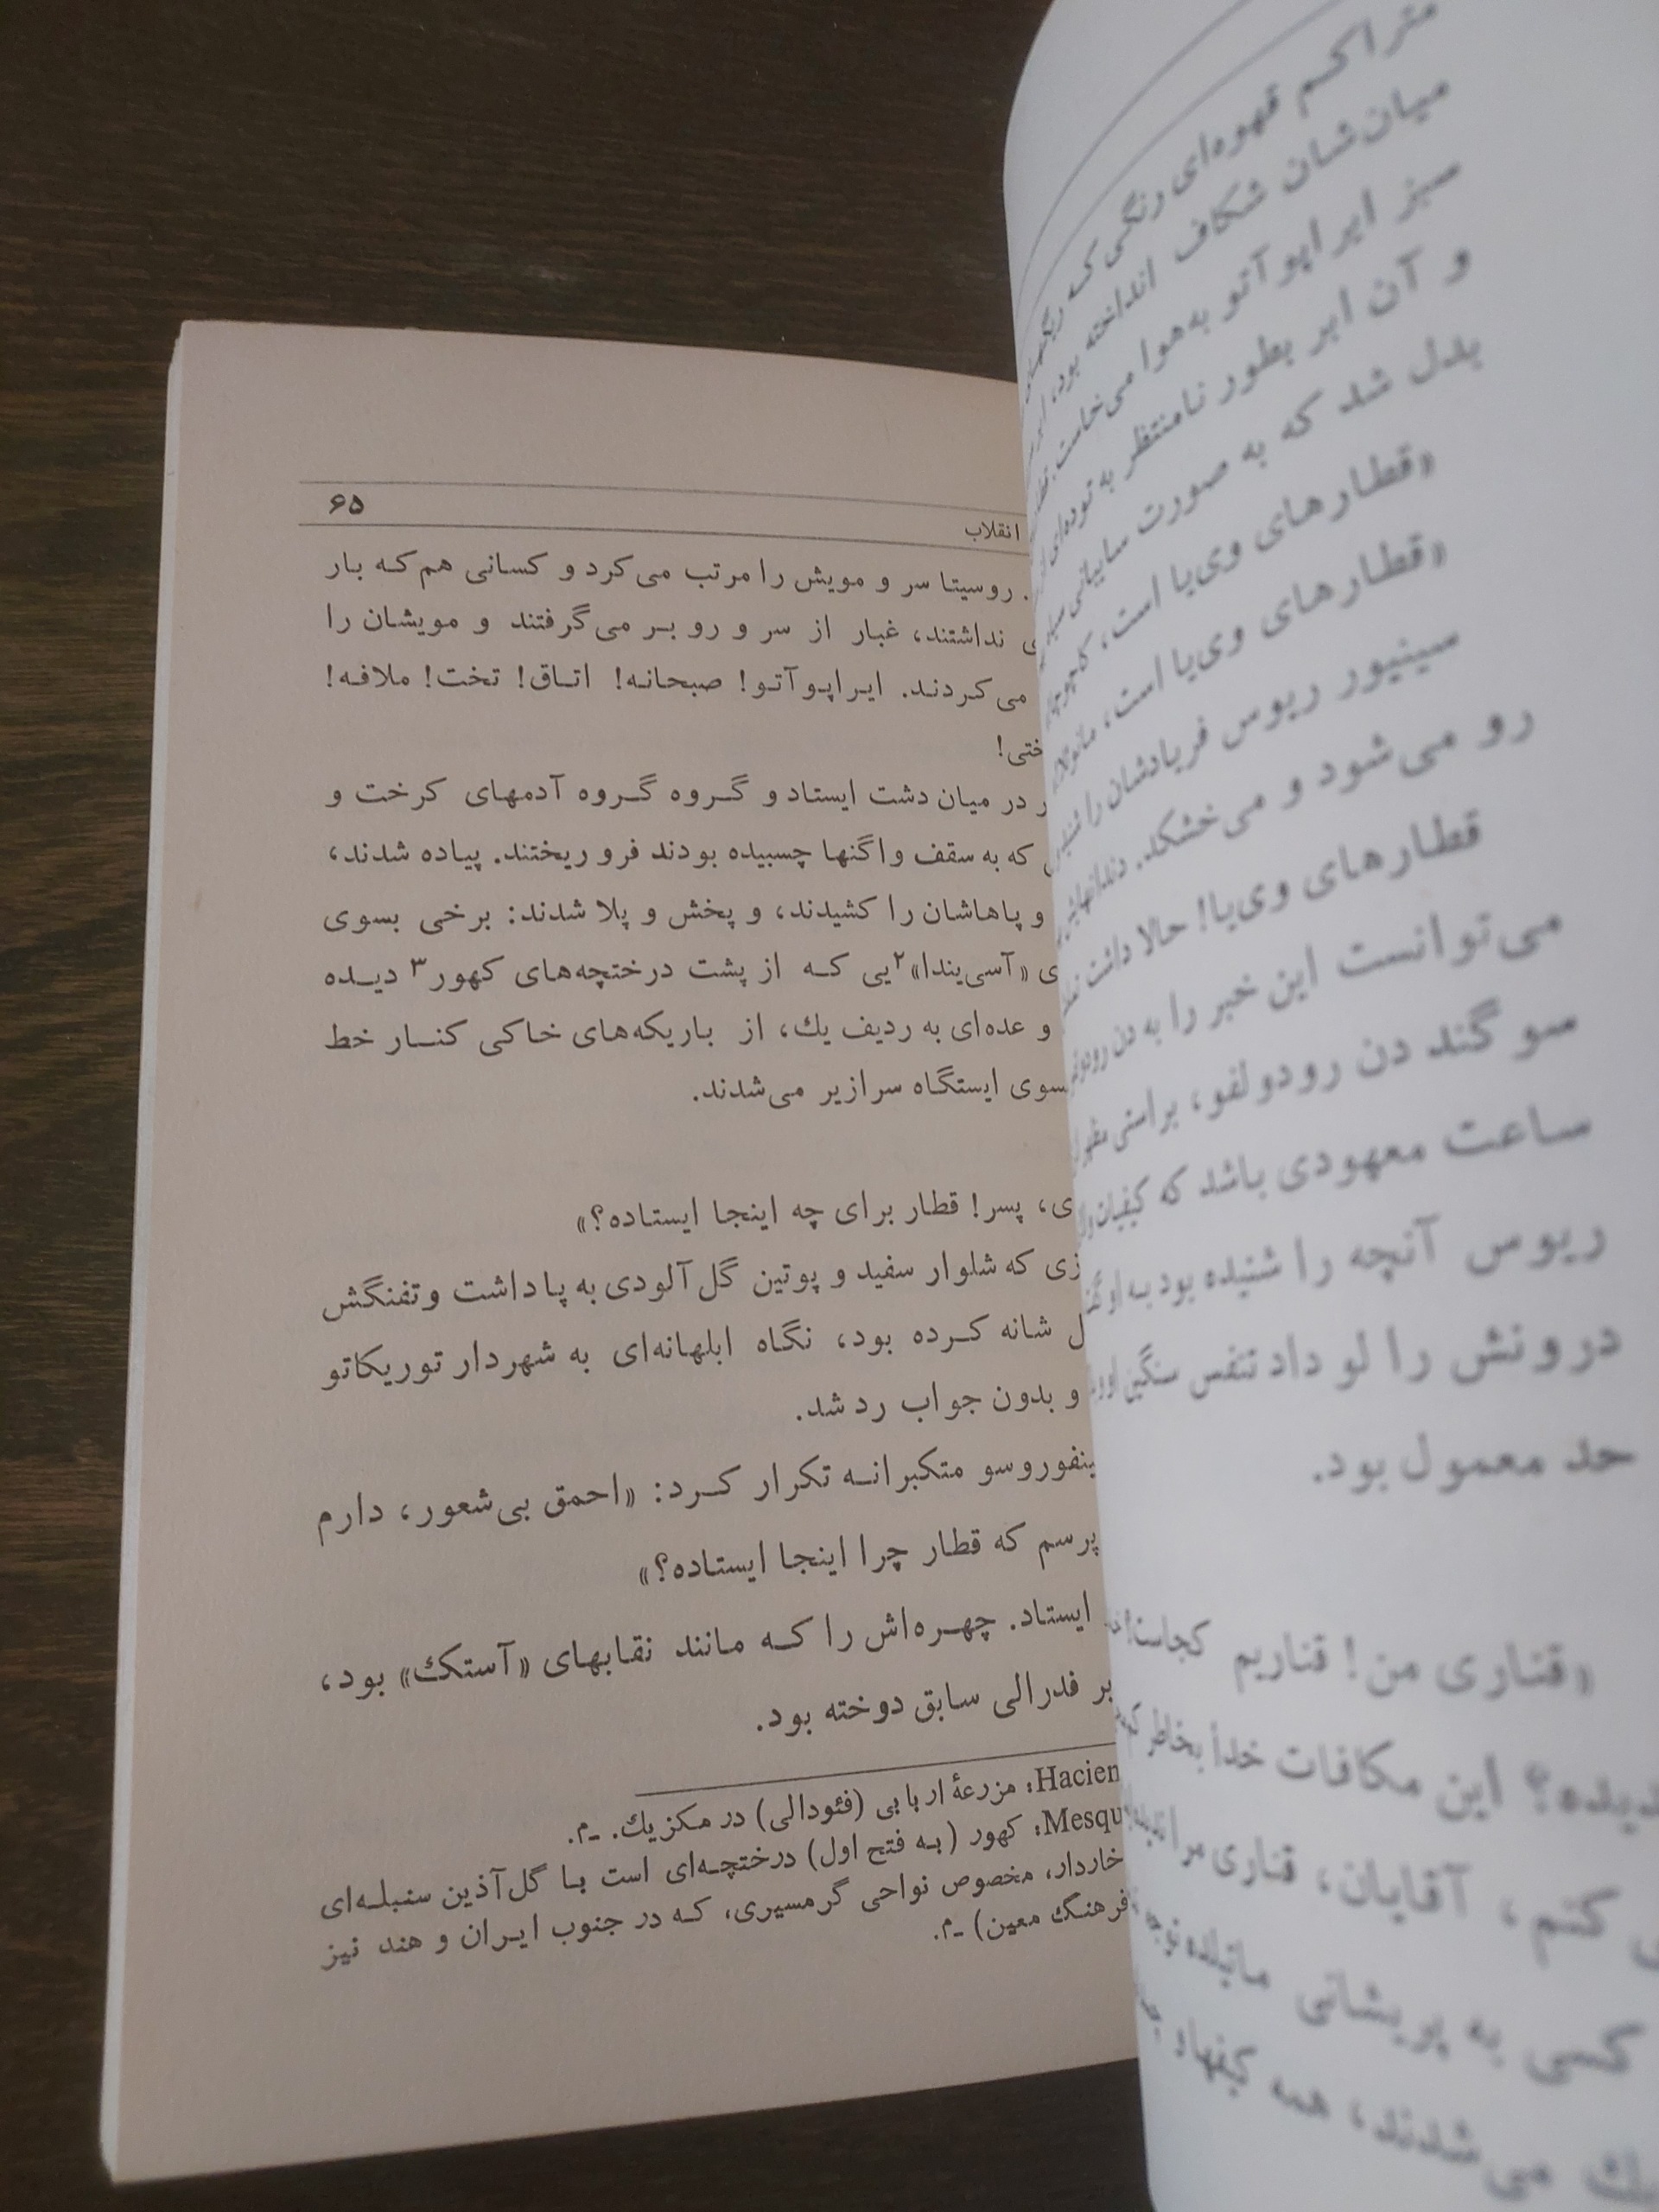 متراکم قهوه‌ای رنگی که ریگهای
میان‌شان شکاف انداخته بود،
سبز ایراپوآتو به‌هوا می‌خاست.
و آن ابر بطور نامنتظر به توده‌ای از
بدل شد که به صورت سایبانی
«قطارهای وی‌یا است،
«قطارهای وی‌یا است، مانوئلا،
سینیور ریوس فریادشان را
رو می‌شود و می‌خشکد.
قطارهای وی‌یا! حالا داشت
می‌توانست این خبر را به دن
سوگند دن رودولفو، براستی
ساعت معهودی باشد که
ریوس آنچه را شنیده بود به او
درونش را لو داد تنفس سنگین
حد معمول بود.
«قناری من! قناریم کجاست؟
دیده؟ این مکافات خداً بخاطر
کنم، آقایان، قناری مرا
کسی به پریشانی
می‌شدند، همه
۶۵
انقلاب
. روسیتا سر و مویش را مرتب می‌کرد و کسانی هم‌که بار
نداشتند، غبار از سر و رو بر می‌گرفتند و مویشان را
می‌کردند. ایراپوآتو! صبحانه! اتاق! تخت! ملافه!
ختی!
ر در میان دشت ایستاد و گروه گروه آدمهای کرخت و
که به سقف واگنها چسبیده بودند فرو ریختند. پیاده شدند،
و پاهاشان را کشیدند، و پخش و پلا شدند: برخی بسوی
ی «آسی‌یندا»۲یی که از پشت درختچه‌های کهور۳ دیده
و عده‌ای به ردیف یك، از باریکه‌های خاکی کنار خط
سوی ایستگاه سرازیر می‌شدند.
ی، پسر! قطار برای چه اینجا ایستاده؟»
زی که شلوار سفید و پوتین گل‌آلودی به پا داشت و تفنگش
ل شانه کرده بود، نگاه ابلهانه‌ای به شهردار توریکاتو
و بدون جواب رد شد.
ینفوروسو متکبرانه تکرار کرد: «احمق بی‌شعور، دارم
پرسم که قطار چرا اینجا ایستاده؟»
ایستاد. چهره‌اش را که مانند نقابهای «آستك» بود،
بر فدرالی سابق دوخته بود.
Hacien: مزرعهٔ اربابی (فئودالی) در مکزیك. ـم.
Mesqu: کهور (به فتح اول) درختچه‌ای است با گل‌آذین سنبله‌ای
خاردار، مخصوص نواحی گرمسیری، که در جنوب ایران و هند نیز
فرهنگ معین) ـم.